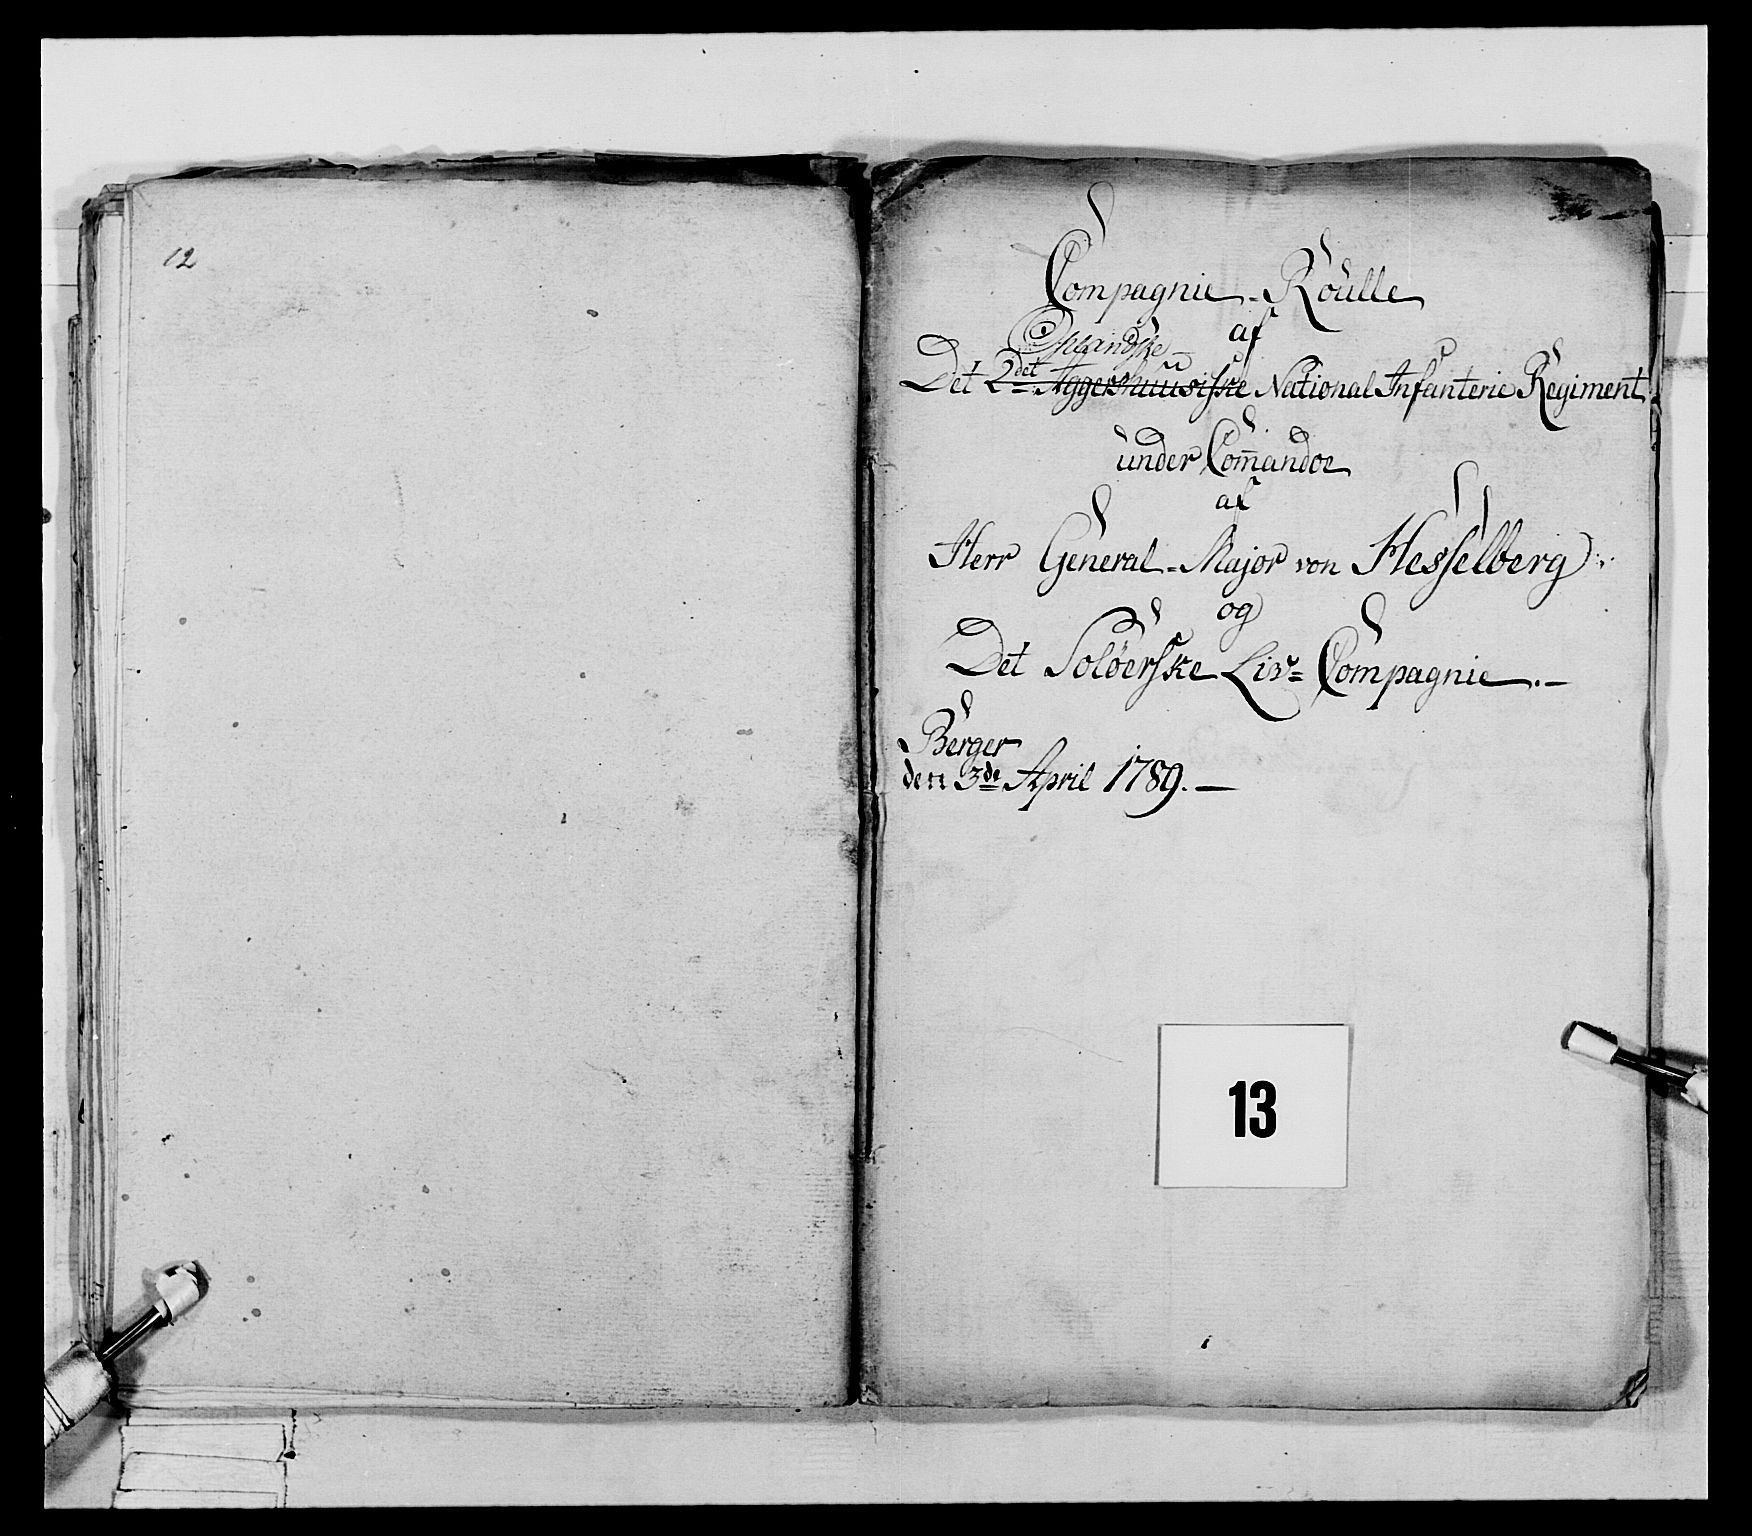 12
Compagnie-Roulle
af
Oplandske
Det 2det Aggershuusiske National Infanterie Regiment
under Com̄andoe
af
Herr General-Major von Hesselberg
og
Det Soløerske Liv-Compagnie.
Berger
den 3de April 1789.
13